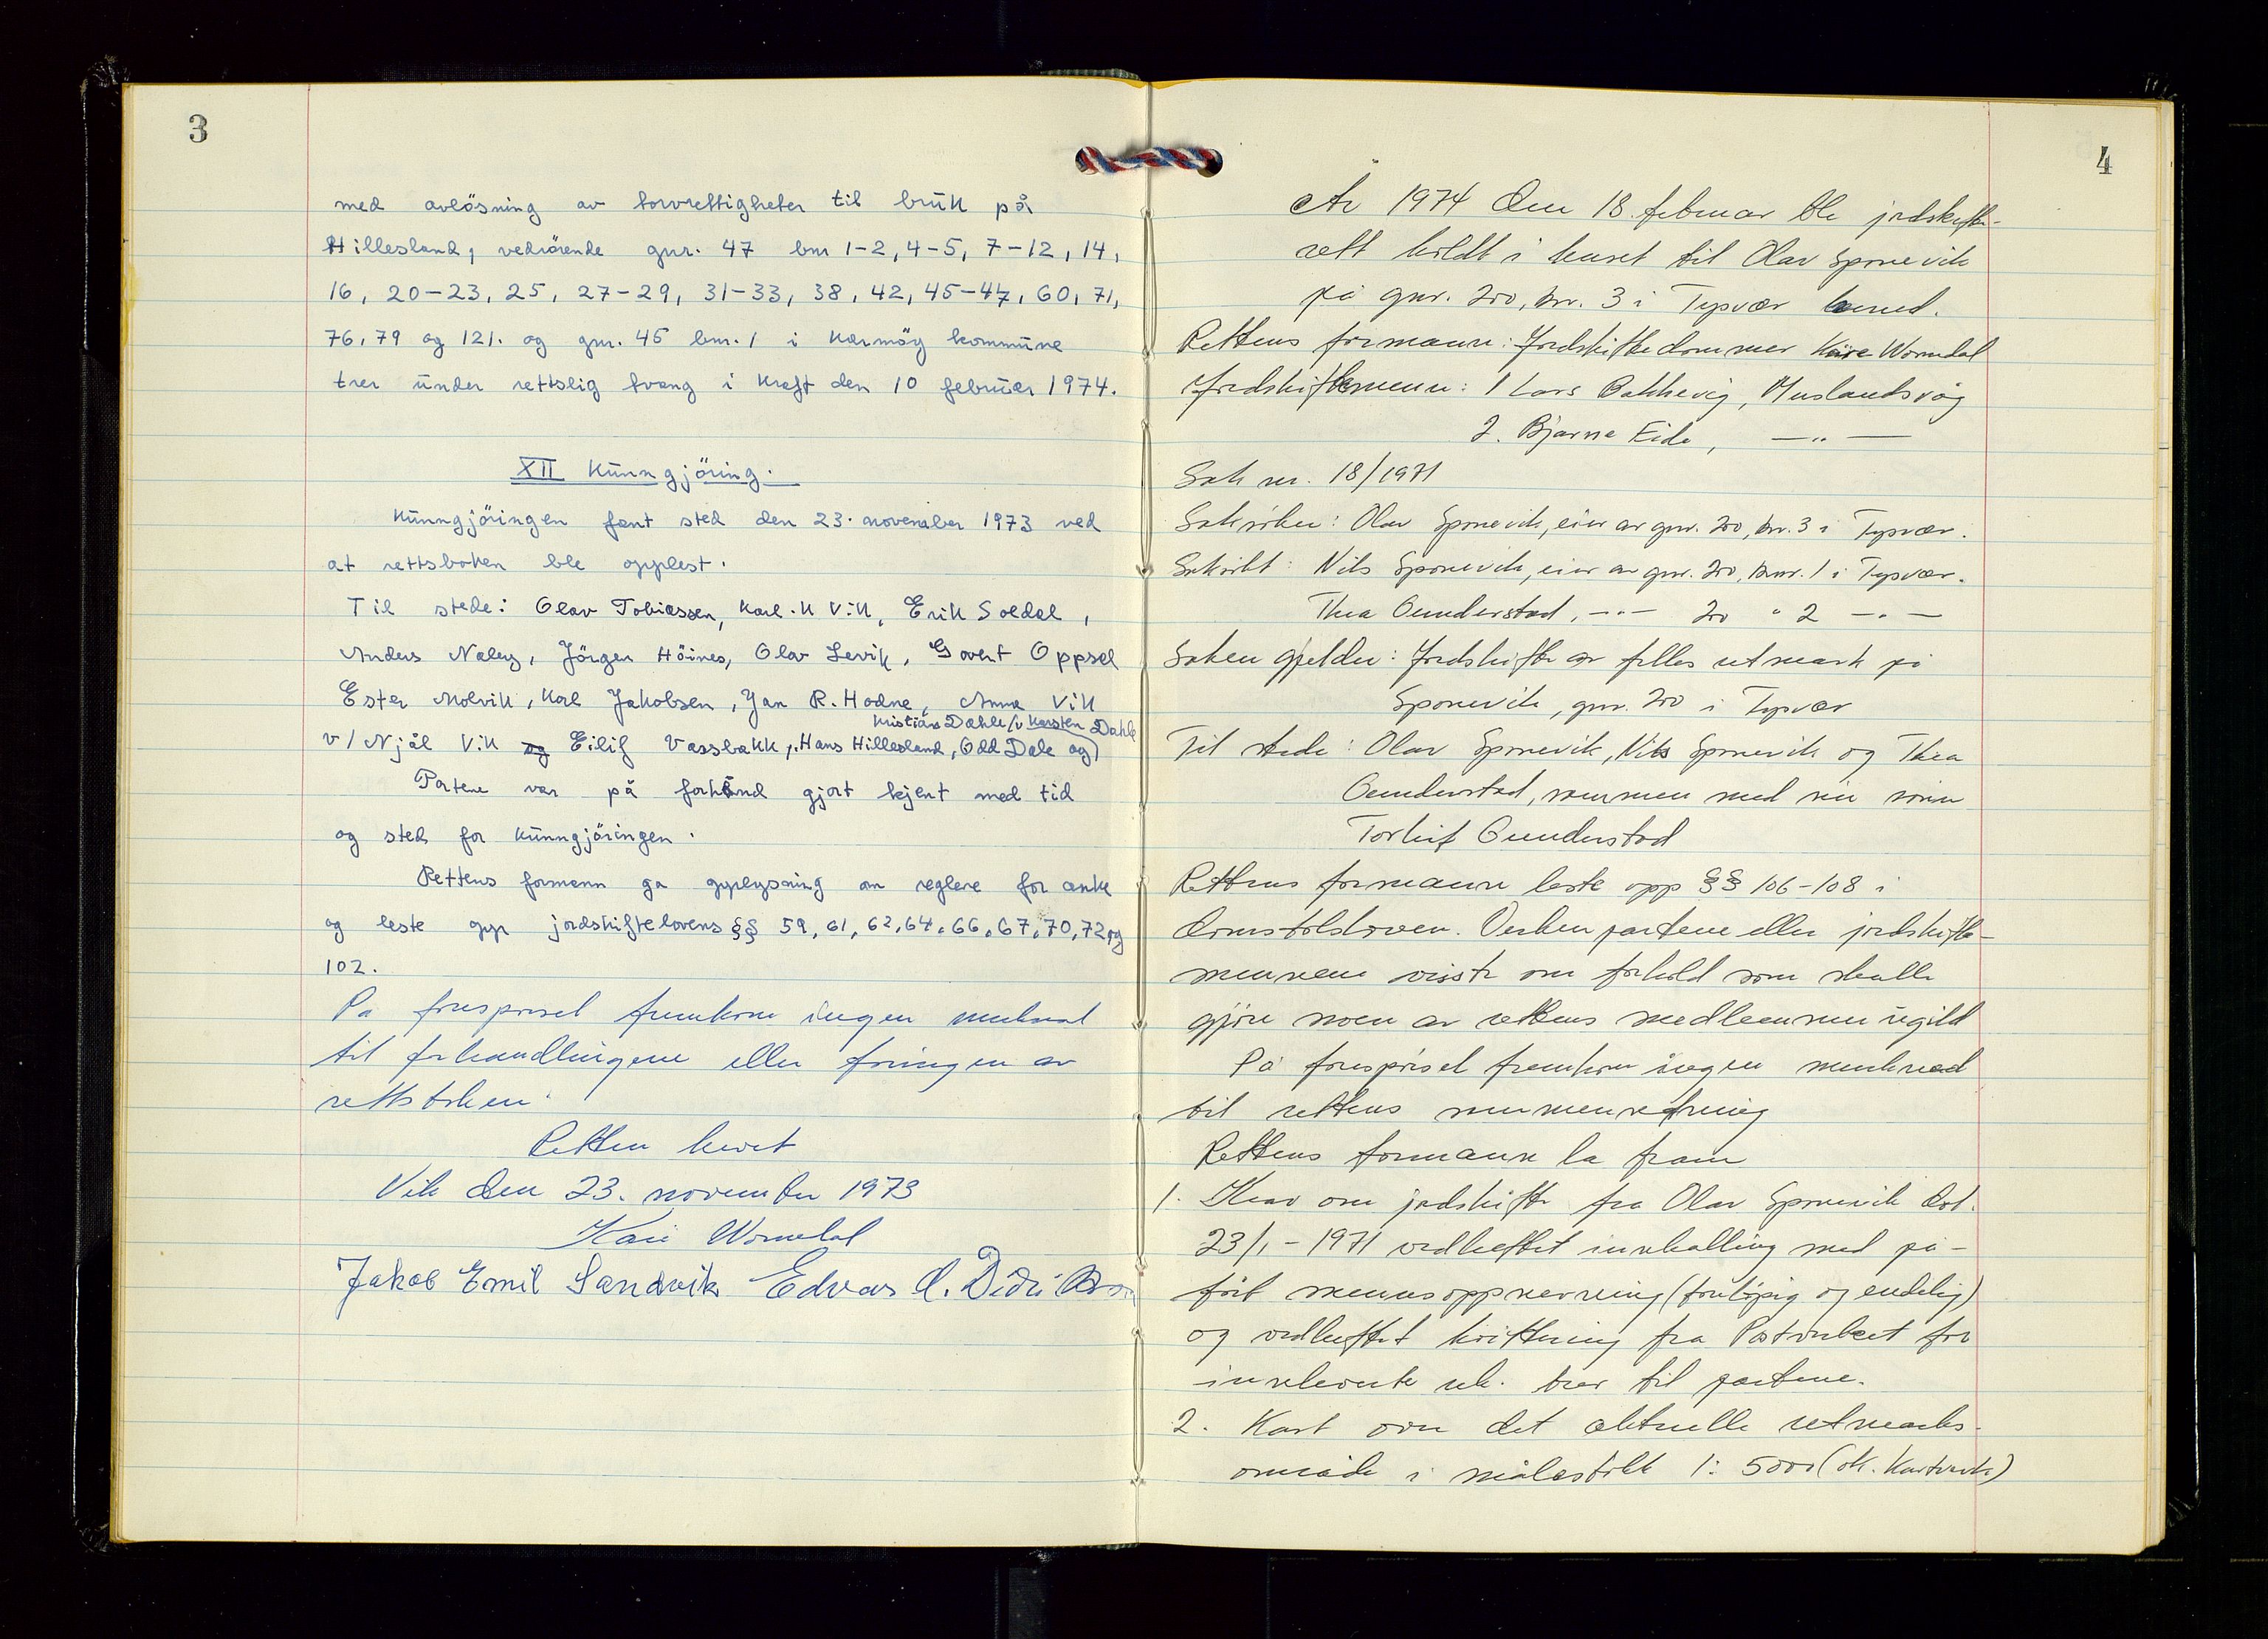 3
med avlösning av torvrettigheter til bruk på
Hillesland, vedrörende gnr. 47 bnr 1-2, 4-5, 7-12, 14,
16, 20-23, 25, 27-29, 31-33, 38, 42, 45-47, 60, 71,
76, 79 og 121. og gnr. 45 bnr. 1 i Karmöy kommune
trer under rettslig tvang i kraft den 10 februar 1974.
XII Kunngjöring.
Kunngjöringen fant sted den 23. november 1973 ved
at rettsboken ble opplest.
Til stede: Olav Tobiassen, Karl. K Vik, Erik Soldal,
Anders Naley, Jörgen Höines, Olav Levik, Govert Oppsal
Ester Molvik, Karl Jakobsen, Jan R. Hodne, Anna Vik
Kristian Dahle/v Karsten Dahle
v/ Njål Vik og Eilif Vassbakk, Hans Hillesland, Odd Dale og)
Partene var på forhånd gjort kjent med tid
og sted for kunngjöringen.
Rettens formann ga opplysning om reglene for anke
og leste opp jordskiftelovens §§ 59, 61, 62, 64, 66, 67, 70, 72, og
102.
På forespörsel fremkom ingen merknad
til forhandlingene ellerföringen av
rettsboken.
Retten hevet
Vik den 23. november 1973
Kåre Wormdal
Jakob Emil Sandvik Edvar
4
År 1974 den 18. februar ble jordskifte-
rett holdt i huset til Olav Sponevik
på gnr. 200, bnr. 3 i Tysvær herred.
Rettens formann: Jordskiftedommer Kåre Wormdal
Jordskiftemenn: 1 Lars Bakkevig, Huslandsvåg
2. Bjarne Eide, —„—
Sak nr. 18/1971
Saksöker: Olav Sponevik, eier av gnr. 200, bnr. 3 i Tysvær.
Saksökt: Nils Sponevik, eier av gnr. 200, bnr. 1 i Tysvær.
Thea Gunderstad, —„— 200 " 2 —„—
Saken gjelder: Jordskifte av felles utmark på
Sponevik, gnr. 200 i Tysvær
Til stede: Olav Sponevik, Nils Sponevik og Thea
Gunderstad, sammen med sin sönn
Torleif Gunderstad
Rettens formann leste opp §§ 106-108 i
domstolsloven. Verken partene eller jordskifte-
mennene visste om forhold som skulle
gjöre noen av rettens medlemmer ugild
På forespörsel fremkom ingen merknad
til rettens sammensetning
Rettens formann la fram
1. Krav om jordskifte fra Olav Sponevik dat.
23/1-1971 vedheftet innkalling med på-
fört mennsoppnevning (forelöpig og endelig)
og vedheftet kvittering fra Postverket for
innleverte rek. brev til partene.
2. Kart over det aktuelle utmarks-
område i målestokk 1:5000 (ök. Kartverk)